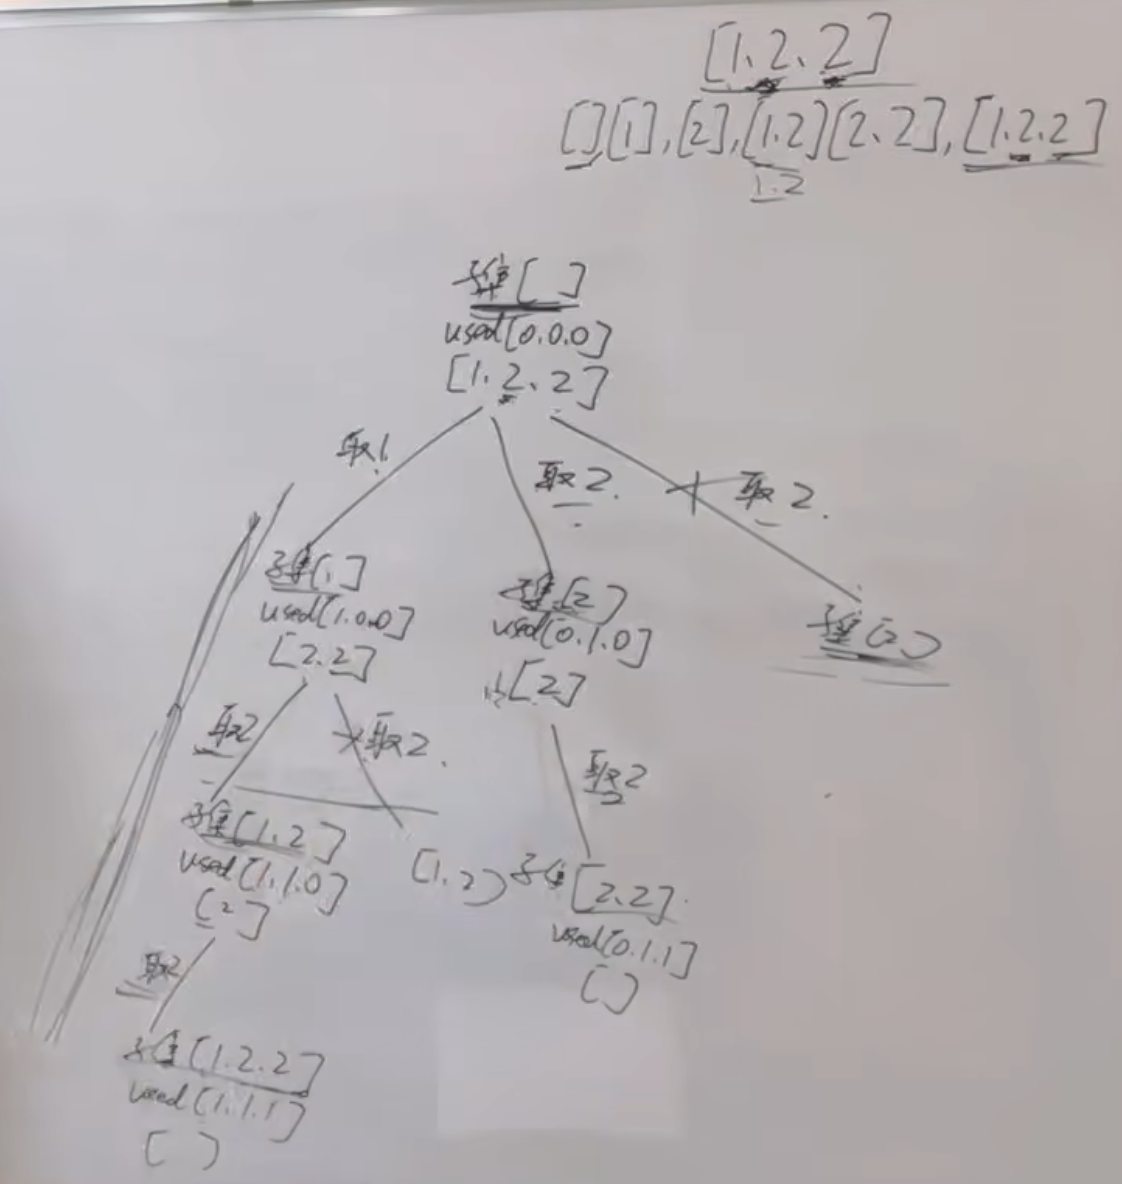 [1.2、2]
[],[1],[2],[1.2][2、2],[1.2.2]
1.2
子集[ ]
used[0.0.0]
[1.2、2]
取1
取2.
取2.
子集[1]
used[1.0.0]
[2.2]
子集[2]
used[0.1.0]
[2]
子集[2]
取2
取2.
取2
子集[1.2]
used[1.1.0]
[2]
[1.2]
子集[2.2]
used[0.1.1]
[ ]
取2
子集[1.2.2]
used[1.1.1]
[ ]